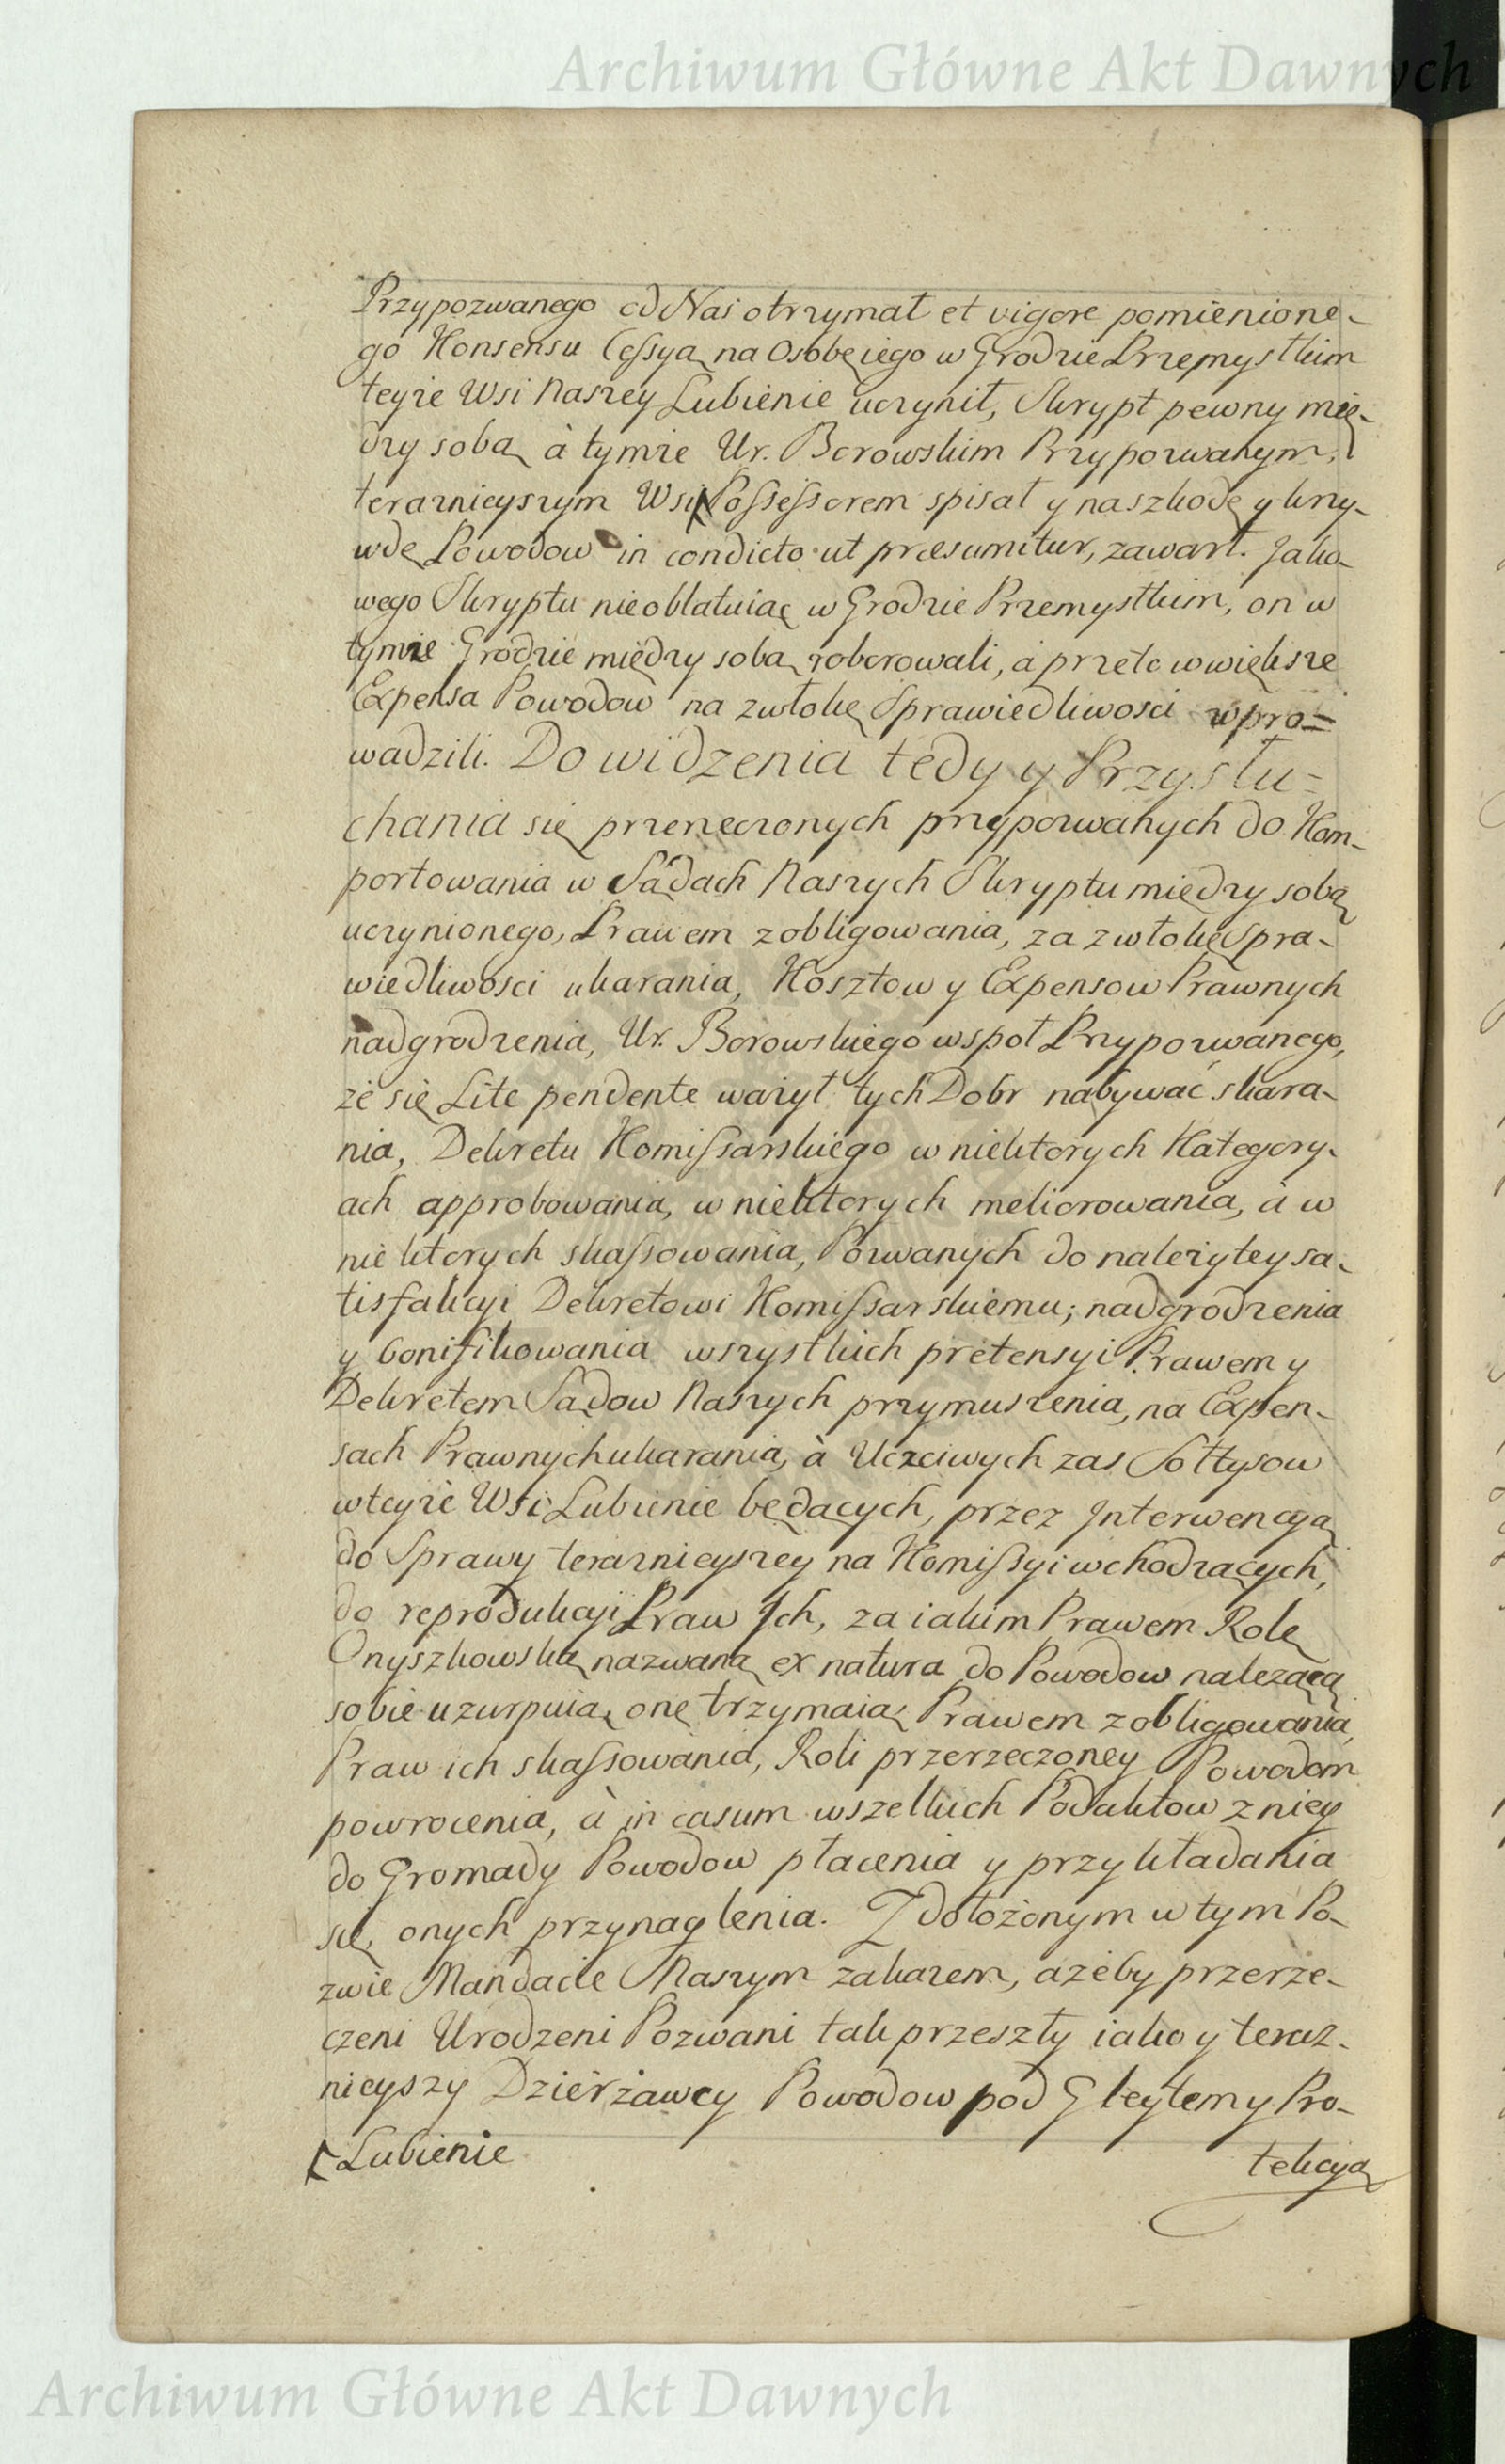 Archiwum Główne Akt Dawnych
Przypozwanego od Nas otrzymał et vigore pomienione-
go Konsensu Cessyą na Osobę iego w Grodzie Przemyslkim
teyże Wsi Naszey Lubienie uczynił, Skrypt pewny mię-
dzy sobą à tymże Ur. Borowskim Przypozwanym,
teraznieyszym Wsi Possessorem spisał y na szkodę y krzy-
wdę Powodow in condicto ut præsumitur, zawarł. Jako-
wego Skryptu nieoblatuiąc w Grodzie Przemyslkim, on w
tymże Grodzie między sobą roborowali, a przeto w większe
Expensa Powodow na zwłokę Sprawiedliwosci wpro=
wadzili. Do widzenia tedy y Przysłu=
chania się przerzeczonych przypozwanych do Kom-
portowania w Sądach Naszych Skryptu między sobą
uczynionego, Prawem zobligowania, za zwłokę Spra-
wiedliwosci ukarania, Kosztow y Expensow Prawnych
nadgrodzenia, Ur. Borowskiego wspoł Przypozwanego,
że się Lite pendente ważył tych Dobr nabywać skara-
nia, Dekretu Komissarskiego w niektorych Kategory-
ach approbowania, w niektorych meliorowania, à w
niektorych skassowania, Pozwanych do należytey sa-
tisfakcyi Dekretowi Komissarskiemu; nadgrodzenia
y bonifikowania wszystkich pretensyi Prawem y
Dekretem Sądow Naszych przymuszenia, na Expen-
sach Prawnych ukarania, à Uczciwych zas Sołtysow
w teyże Wsi Lubienie będących, przez Interwencyą
do Sprawy teraznieyszey na Komissyi wchodzących,
do reprodukcyi Praw Ich, za iakim Prawem Rolę
Onyszkowską nazwaną ex natura do Powodow należącą
sobie uzurpuią, onę trzymaią, Prawem zobligowania,
Praw ich skassowania, Roli przerzeczoney Powodom
powrocenia, à in casum wszelkich Podatkow z niey
do Gromady Powodow płacenia y przykładania
się, onych przynaglenia. Z dołożonym w tym Po-
zwie Mandacie Naszym zakazem, ażeby przerze-
czeni Urodzeni Pozwani tak przeszły iako y teraz-
nieyszy Dzierżawcy Powodow pod Gleytem y Pro-
Lubienie
tekcyą
Archiwum Główne Akt Dawnych